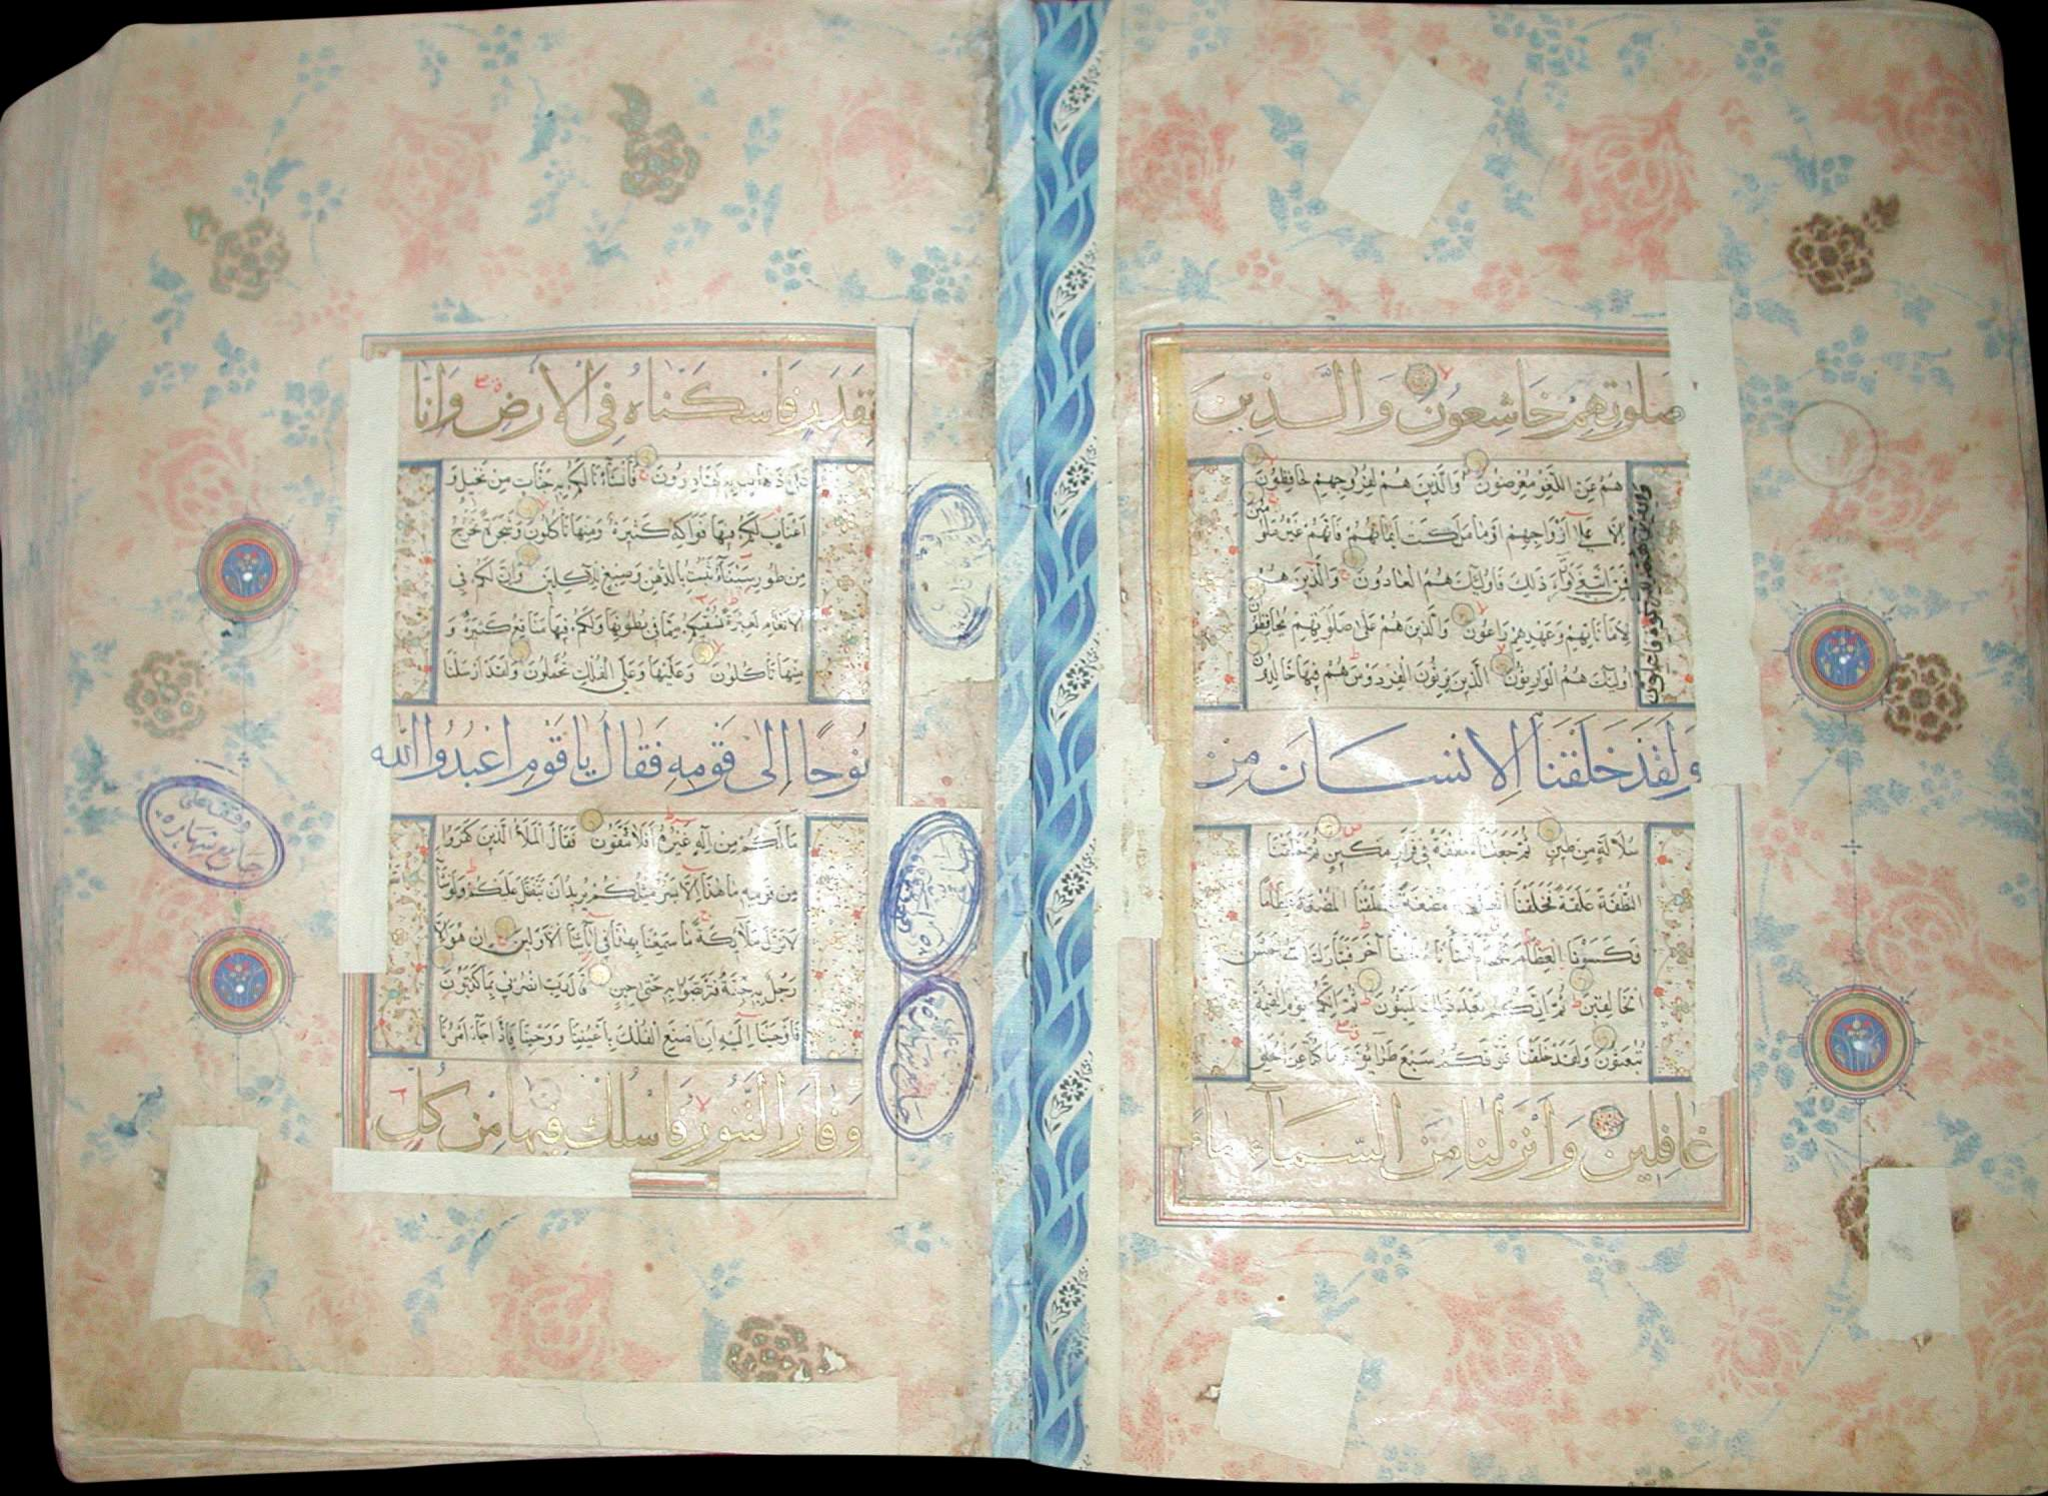 صلوتهم خاشعون والذين
هم عن اللغو معرضون والذين هم لفروجهم حافظون
الا على ازواجهم او ما ملكت ايمانهم فانهم غير ملومين
فمن ابتغى وراء ذلك فاولئك هم العادون والذين هم
لاماناتهم وعهدهم راعون والذين هم على صلوتهم يحافظون
اولئك هم الوارثون الذين يرثون الفردوس هم فيها خالدون
والذين هم للزكوة فاعلون
ولقد خلقنا الانسان من
سلالة من طين ثم جعلناه نطفة في قرار مكين ثم خلقنا
النطفة علقة فخلقنا العلقة مضغة فخلقنا المضغة عظاما
فكسونا العظام لحما ثم انشأناه خلقا آخر فتبارك الله احسن
الخالقين ثم انكم بعد ذلك لميتون ثم انكم يوم القيمة
تبعثون ولقد خلقنا فوقكم سبع طرائق وما كنا عن الخلق
غافلين وانزلنا من السماء ماء
بقدر فاسكناه في الارض وانا
على ذهاب به لقادرون فانشأنا لكم به جنات من نخيل و
اعناب لكم فيها فواكه كثيرة ومنها تأكلون وشجرة تخرج
من طور سيناء تنبت بالدهن وصبغ للآكلين وان لكم في
الانعام لعبرة نسقيكم مما في بطونها ولكم فيها منافع كثيرة و
منها تأكلون وعليها وعلى الفلك تحملون ولقد ارسلنا
نوحا الى قومه فقال يا قوم اعبدوا الله
ما لكم من اله غيره افلا تتقون فقال الملأ الذين كفروا
من قومه ما هذا الا بشر مثلكم يريد ان يتفضل عليكم ولو شاء
لانزل ملائكة ما سمعنا بهذا في آبائنا الاولين ان هو الا
رجل به جنة فتربصوا به حتى حين قال رب انصرني بما كذبون
فاوحينا اليه ان اصنع الفلك باعيننا ووحينا فاذا جاء امرنا
وفار التنور فاسلك فيها من كل
وقف على
جامع شهاره